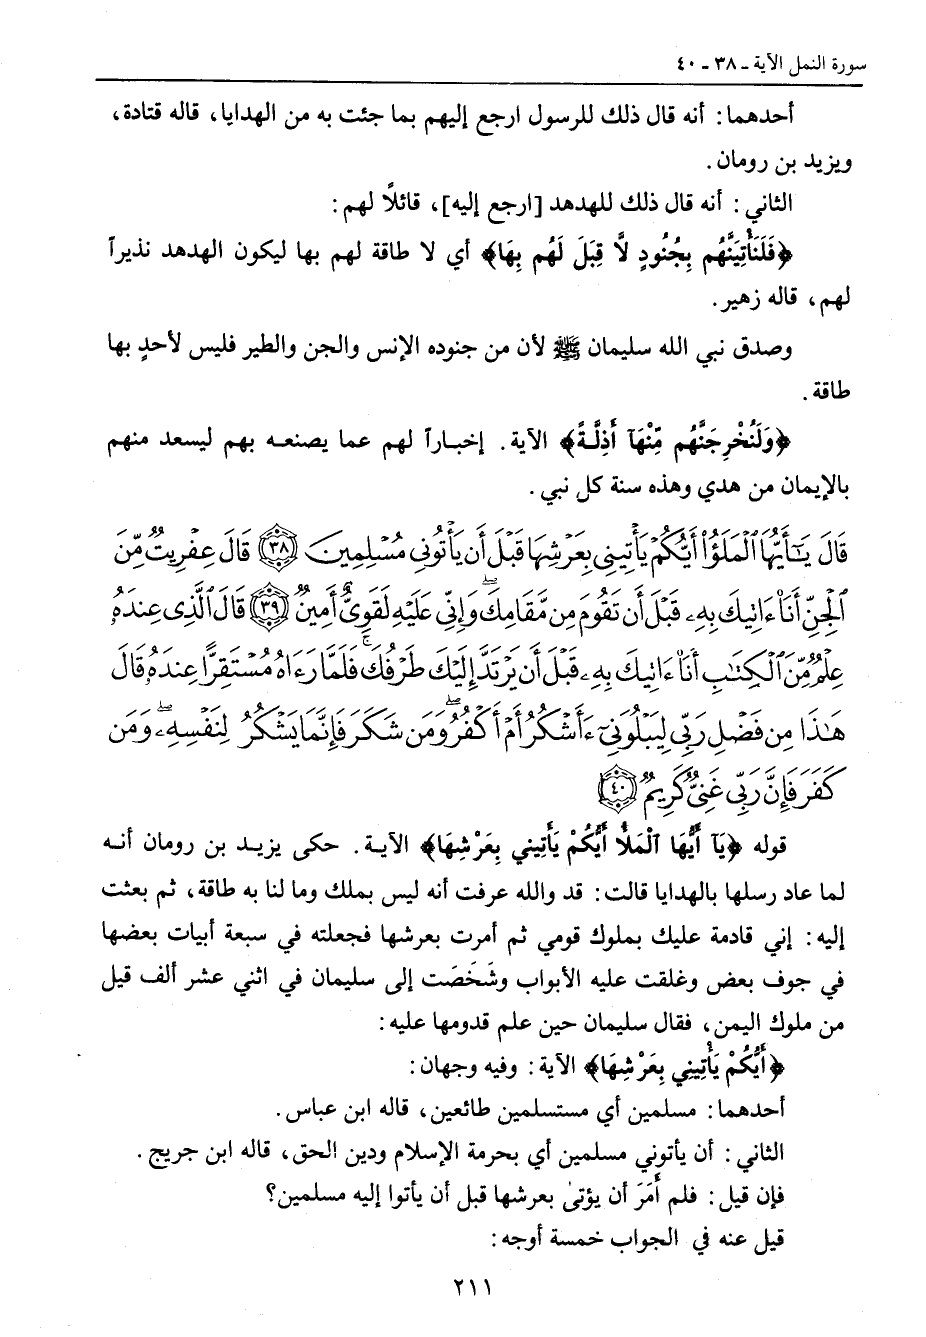 سورة النمل الآية ـ ٣٨ ـ ٤٠
أحدهما: أنه قال ذلك للرسول ارجع إليهم بما جئت به من الهدايا، قاله قتادة،
ويزيد بن رومان.
الثاني: أنه قال ذلك للهدهد [ارجع إليه]، قائلاً لهم:
﴿فَلَنَأْتِيَنَّهُم بِجُنُودٍ لاَّ قِبَلَ لَهُم بِهَا﴾ أي لا طاقة لهم بها ليكون الهدهد نذيراً
لهم، قاله زهير.
وصدق نبي الله سليمان ﷺ لأن من جنوده الإنس والجن والطير فليس لأحدٍ بها
طاقة.
﴿وَلَنُخْرِجَنَّهُم مِّنْهَآ أَذِلَّةً﴾ الآية. إخباراً لهم عما يصنعه بهم ليسعد منهم
بالإيمان من هدي وهذه سنة كل نبي.
قَالَ يَٰٓأَيُّهَا ٱلْمَلَؤُا۟ أَيُّكُمْ يَأْتِينِى بِعَرْشِهَا قَبْلَ أَن يَأْتُونِى مُسْلِمِينَ ٣٨ قَالَ عِفْرِيتٌ مِّنَ
ٱلْجِنِّ أَنَا۠ ءَاتِيكَ بِهِۦ قَبْلَ أَن تَقُومَ مِن مَّقَامِكَ ۖ وَإِنِّى عَلَيْهِ لَقَوِىٌّ أَمِينٌ ٣٩ قَالَ ٱلَّذِى عِندَهُۥ
عِلْمٌ مِّنَ ٱلْكِتَٰبِ أَنَا۠ ءَاتِيكَ بِهِۦ قَبْلَ أَن يَرْتَدَّ إِلَيْكَ طَرْفُكَ ۚ فَلَمَّا رَءَاهُ مُسْتَقِرًّا عِندَهُۥ قَالَ
هَٰذَا مِن فَضْلِ رَبِّى لِيَبْلُوَنِىٓ ءَأَشْكُرُ أَمْ أَكْفُرُ ۖ وَمَن شَكَرَ فَإِنَّمَا يَشْكُرُ لِنَفْسِهِۦ ۖ وَمَن
كَفَرَ فَإِنَّ رَبِّى غَنِىٌّ كَرِيمٌ ٤٠
قوله ﴿يَآ أَيُّهَا الْمَلأُ أَيُّكُمْ يَأْتِينِي بِعَرْشِهَا﴾ الآية. حكى يزيد بن رومان أنه
لما عاد رسلها بالهدايا قالت: قد والله عرفت أنه ليس بملك وما لنا به طاقة، ثم بعثت
إليه: إني قادمة عليك بملوك قومي ثم أمرت بعرشها فجعلته في سبعة أبيات بعضها
في جوف بعض وغلقت عليه الأبواب وشَخَصَت إلى سليمان في اثني عشر ألف قيل
من ملوك اليمن، فقال سليمان حين علم قدومها عليه:
﴿أَيُّكُمْ يَأْتِينِي بِعَرْشِهَا﴾ الآية: وفيه وجهان:
أحدهما: مسلمين أي مستسلمين طائعين، قاله ابن عباس.
الثاني: أن يأتوني مسلمين أي بحرمة الإسلام ودين الحق، قاله ابن جريج.
فإن قيل: فلم أَمَرَ أن يؤتىٰ بعرشها قبل أن يأتوا إليه مسلمين؟
قيل عنه في الجواب خمسة أوجه:
٢١١